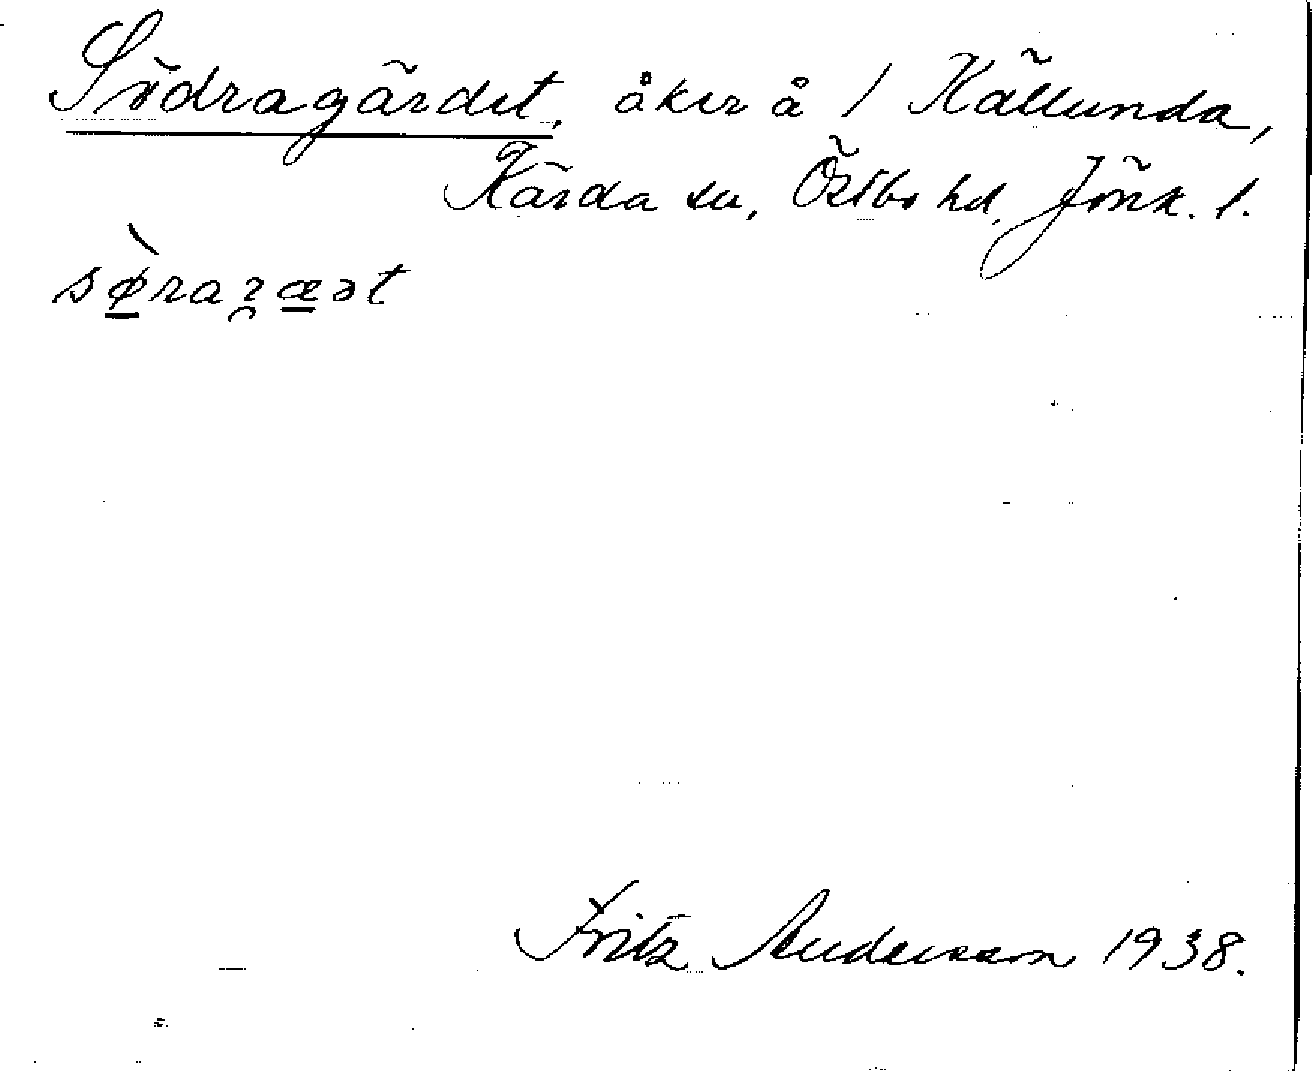 Södragärdet, åker å 1 Källunda,
Kärda sn, Östbo hd, Jönk. l.
sø̀raɼæət
Fritz Andersson 1938.